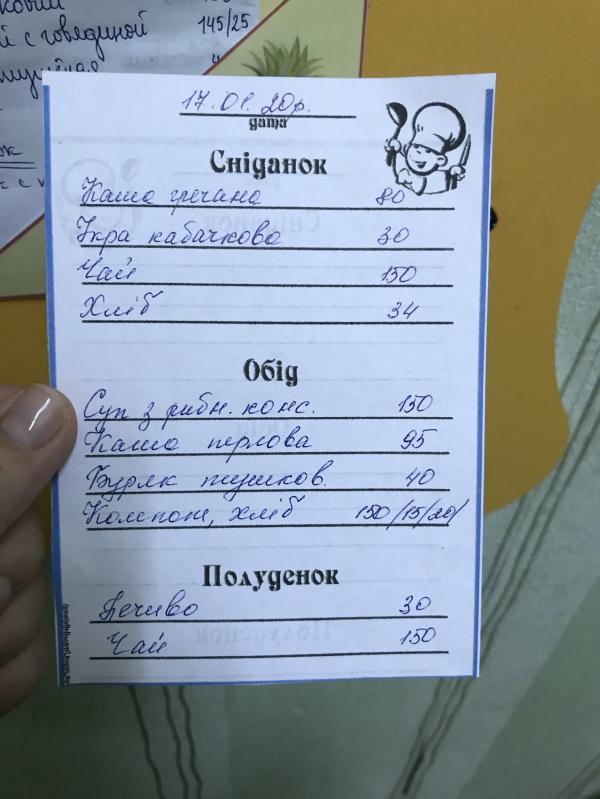 145/25
17.01.20р.
дата
Сніданок
Каша гречана 80
Ікра кабачкова 30
Чай 150
Хліб 34
Обід
Суп з рибн. конс. 150
Каша перлова 95
Буряк тушков. 40
Компот, хліб 150/15/20/
Полуденок
Печиво 30
Чай 150